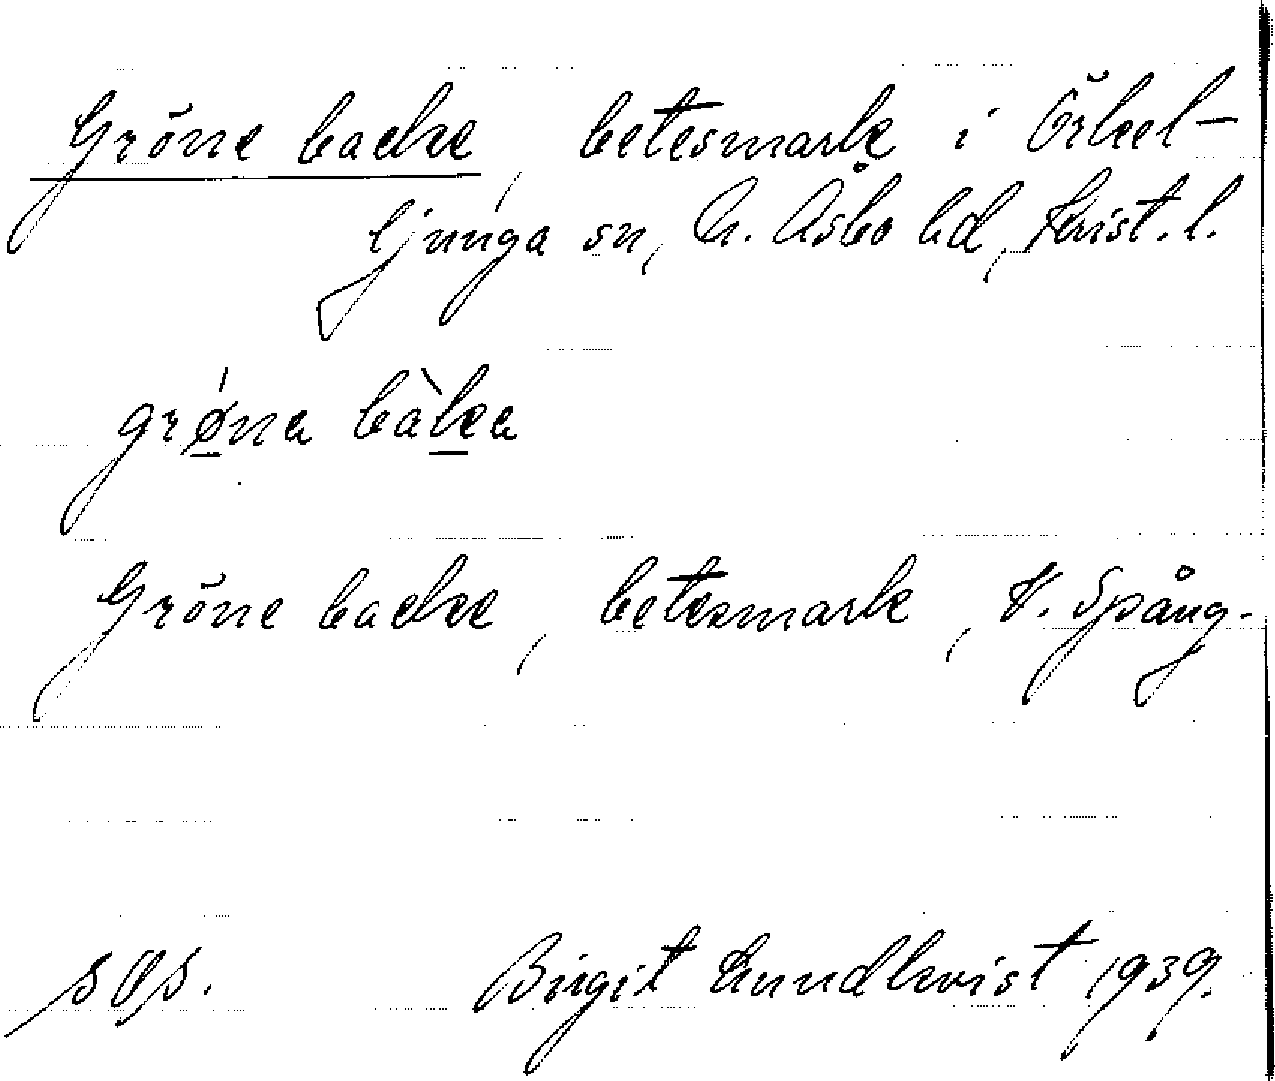 Gröne backe, betesmark i Örkel-
ljunga sn, N. Åsbo hd, Krist. l.
grǿ̱na bàḵa
Gröne backe, betesmark, V. Spång.
Birgit Lundkvist 1939.